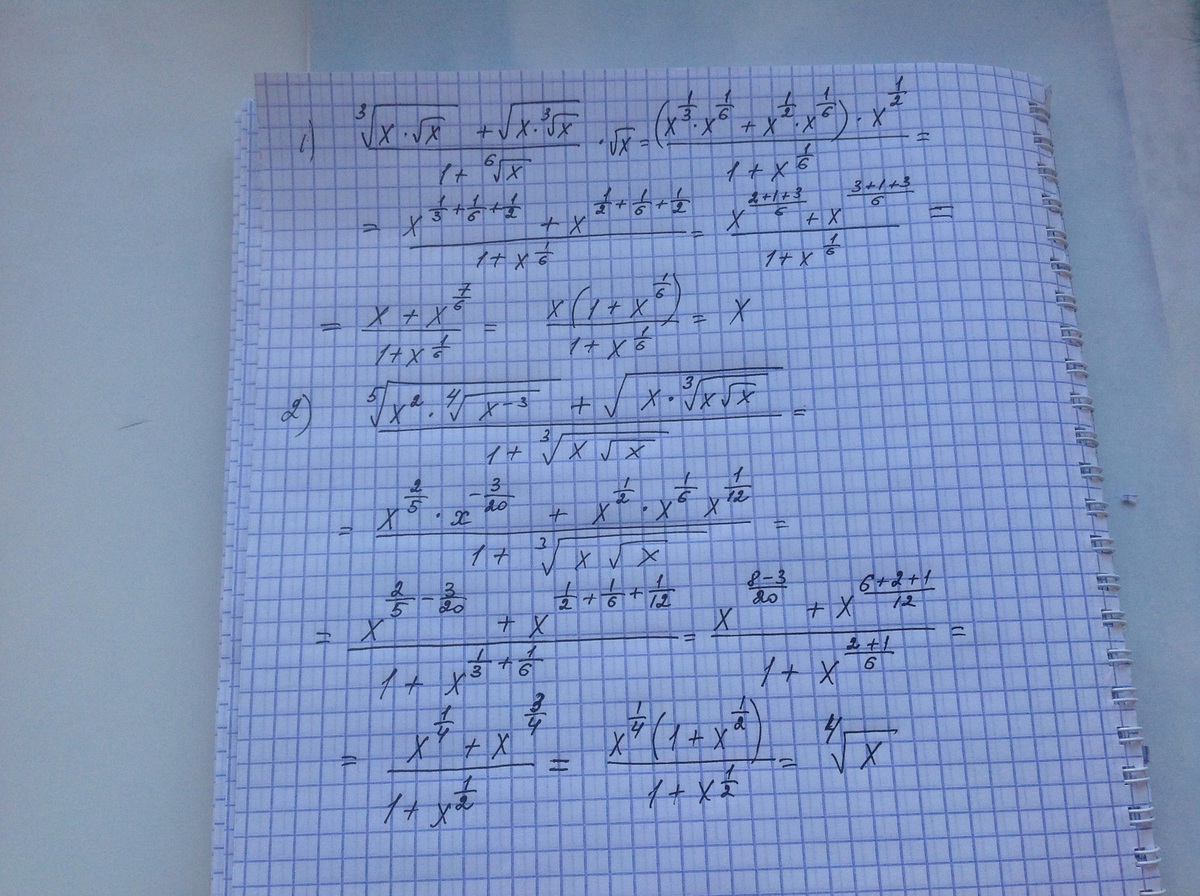 1) \frac{\sqrt[3]{x \cdot \sqrt{x}} + \sqrt{x \cdot \sqrt[3]{x}}}{1 + \sqrt[6]{x}} \cdot \sqrt{x} = \frac{(x^{\frac{1}{3}} \cdot x^{\frac{1}{6}} + x^{\frac{1}{2}} \cdot x^{\frac{1}{6}}) \cdot x^{\frac{1}{2}}}{1 + x^{\frac{1}{6}}} =
= \frac{x^{\frac{1}{3} + \frac{1}{6} + \frac{1}{2}} + x^{\frac{1}{2} + \frac{1}{6} + \frac{1}{2}}}{1 + x^{\frac{1}{6}}} = \frac{x^{\frac{2+1+3}{6}} + x^{\frac{3+1+3}{6}}}{1 + x^{\frac{1}{6}}} =
= \frac{x + x^{\frac{7}{6}}}{1 + x^{\frac{1}{6}}} = \frac{x(1 + x^{\frac{1}{6}})}{1 + x^{\frac{1}{6}}} = x
2) \frac{\sqrt[5]{x^2 \cdot \sqrt[4]{x^{-3}}} + \sqrt{x \cdot \sqrt[3]{x \sqrt{x}}}}{1 + \sqrt[3]{x \sqrt{x}}} =
= \frac{x^{\frac{2}{5}} \cdot x^{-\frac{3}{20}} + x^{\frac{1}{2}} \cdot x^{\frac{1}{6}} x^{\frac{1}{12}}}{1 + \sqrt[3]{x \sqrt{x}}} =
= \frac{x^{\frac{2}{5} - \frac{3}{20}} + x^{\frac{1}{2} + \frac{1}{6} + \frac{1}{12}}}{1 + x^{\frac{1}{3} + \frac{1}{6}}} = \frac{x^{\frac{8-3}{20}} + x^{\frac{6+2+1}{12}}}{1 + x^{\frac{2+1}{6}}} =
= \frac{x^{\frac{1}{4}} + x^{\frac{3}{4}}}{1 + x^{\frac{1}{2}}} = \frac{x^{\frac{1}{4}}(1 + x^{\frac{1}{2}})}{1 + x^{\frac{1}{2}}} = \sqrt[4]{x}